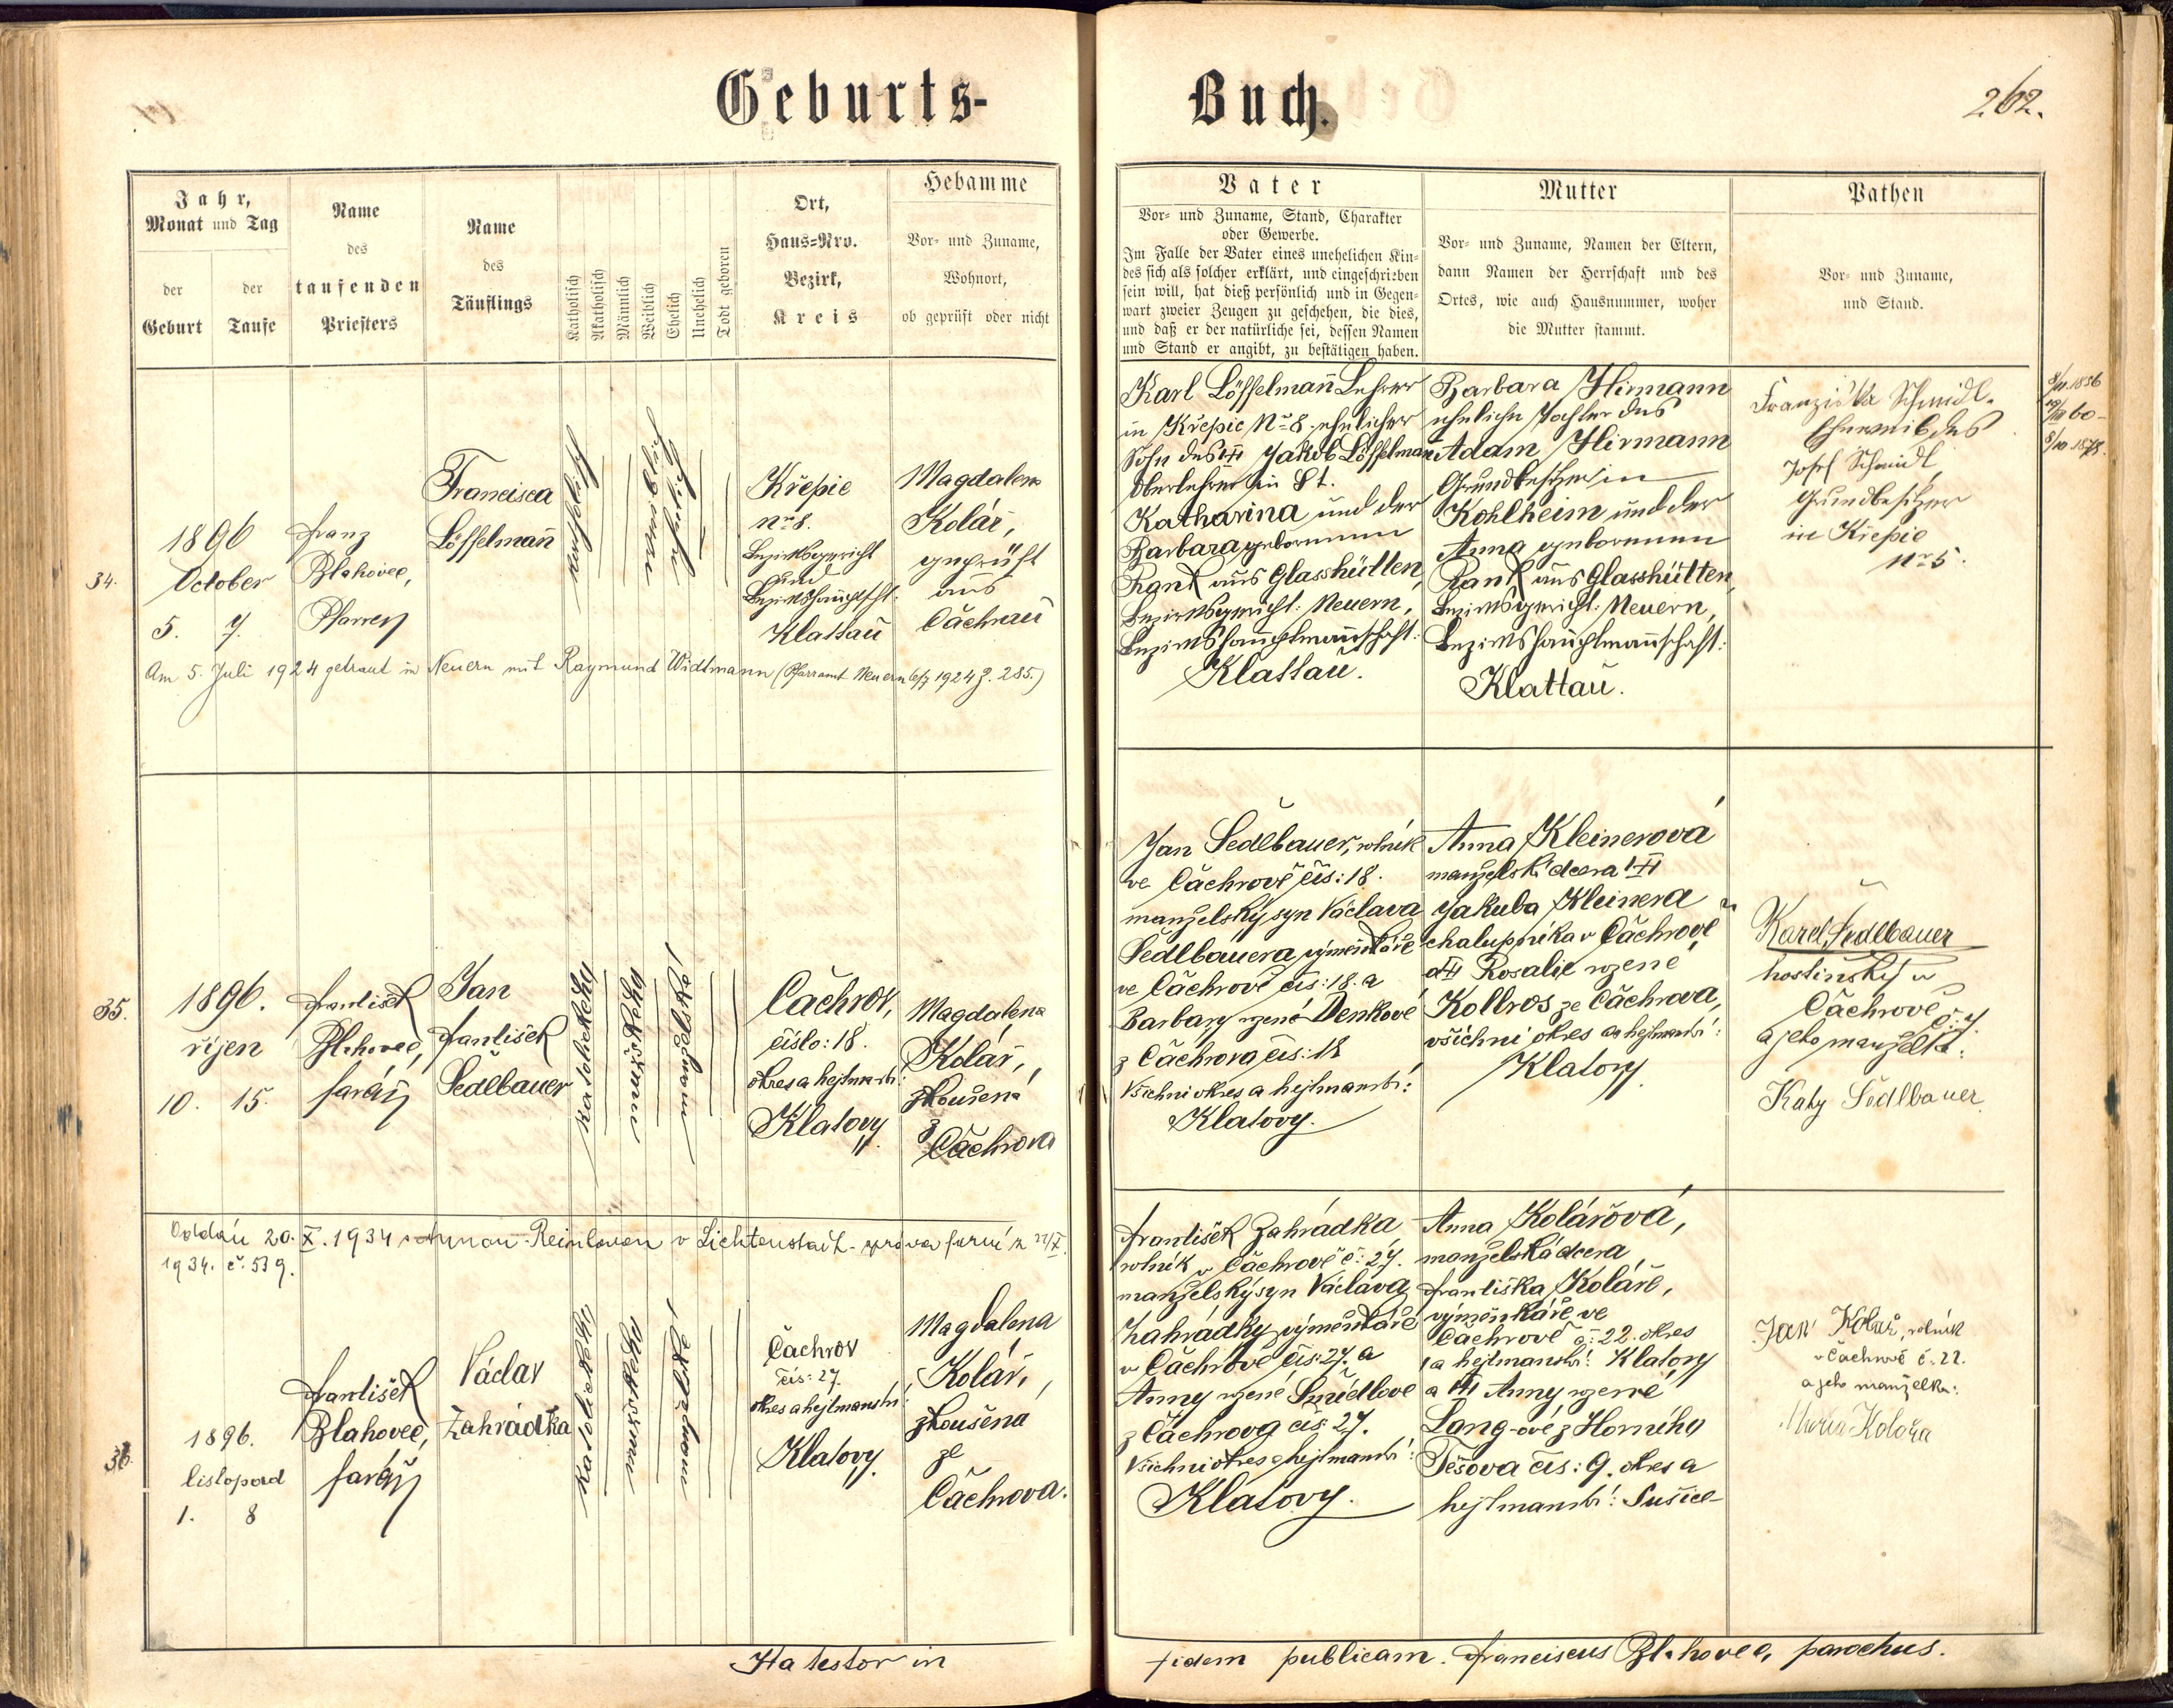 Geburts-
Buch.
262.
Jahr,
Monat und Tag
der
Geburt
der
Taufe
Name
des
taufenden
Priesters
Name
des
Täuflings
Katholisch
Akatholisch
Männlich
Weiblich
Ehelich
Unehelich
Todt geboren
Ort,
Haus=Nro.
Bezirk,
Kreis
Hebamme
Vor- und Zuname,
Wohnort,
ob geprüft oder nicht
Vater
Vor- und Zuname, Stand, Charakter
oder Gewerbe.
Im Falle der Vater eines unehelichen Kin-
des sich als solcher erklärt, und eingeschrieben
sein will, hat dieß persönlich und in Gegen-
wart zweier Zeugen zu geschehen, die dies,
und daß er der natürliche sei, dessen Namen
und Stand er angibt, zu bestätigen haben.
Mutter
Vor- und Zuname, Namen der Eltern,
dann Namen der Herrschaft und des
Ortes, wie auch Hausnummer, woher
die Mutter stammt.
Pathen
Vor- und Zuname,
und Stand.
34.
1896
October
5. 7.
Franz
Blahovec,
Pfarrer
Francisca
Löffelmann
katholisch
weiblich
ehelich
Křepic
Nr 8.
Bezirksgericht
und
Bezirkshauptschft.
Klattau
Magdalena
Kolář,
geprüft
aus
Čachrau
Karl Löffelmann Lehrer
in Křepic Nr 8. ehelicher
Sohn des Jakob Löffelmann
Oberlehrer in St.
Katharina und der
Barbara geborenen
Rank aus Glasshütten,
Bezirksgericht: Neuern,
Bezirkshauptmannschaft:
Klattau.
Barbara Hirmann
eheliche Tochter des
Adam Hirmann
Grundbesitzer in
Kohlheim und der
Anna geborenen
Rank aus Glasshütten
Bezirksgericht: Neuern,
Bezirkshauptmannschaft:
Klattau.
Franziska Schmidl.
Eheweib des
Josef Schmidl
Grundbesitzer
in Křepic
Nr 5.
Am 5. Juli 1924 getraut in Neuern mit Raymund Widtmann (Pfarramt Neuern 6/7 1924 Z. 285.)
35.
1896.
říjen
10. 15.
František
Blahovec,
farář
Jan
František
Sedlbauer
katolický
mužské
manželské
Čachrov,
číslo: 18.
okres a hejtmanství:
Klatovy.
Magdalena
Kolář,
zkoušená
z
Čachrova
Jan Sedlbauer, rolník
ve Čachrově čís: 18.
manželský syn Václava
Sedlbauera, výměnkáře
ve Čachrově čís: 18. a
Barbary rozené Denkové
z Čachrova čís: 18
Všichni okres a hejtmanství:
Klatovy.
Anna Kleinerová
manželská dcera
Jakuba Kleinera
chalupníka v Čachrově
a Rosalie rozené
Kollros ze Čachrova,
všichni okres a hejtmanství:
Klatovy.
Karel Sedlbauer
hostinský v
Čachrově č. 7.
a jeho manželka:
Katy Sedlbauer
Oddán 20. X. 1934 s Annou Reinlovou v Lichtenstadt - zpráva farní z 22/X.
1934. č. 539.
36.
1896.
listopad
1. 8
František
Blahovec,
farář
Václav
Zahrádka
katolické
mužské
manželské
Čachrov
čís: 27.
okres a hejtmanství
Klatovy.
Magdalena
Kolář,
zkoušena
ze
Čachrova.
František Zahrádka
rolník v Čachrově č: 27.
manželský syn Václava
Zahrádky, výměnkáře
v Čachrově čís: 27. a
Anny rozené Šmídlové
z Čachrova čís: 27.
Všichni okres a hejtmanství:
Klatovy.
Anna Kolářová,
manželská dcera
Františka Koláře,
výměnkáře ve
Čachrově č: 22. okres
a hejtmanství: Klatovy
a Anny rozené
Lang-ové z Horního
Těšova čís: 9. okres a
hejtmanství: Sušice
Jan Kolář, rolník
v Čachrově č. 22.
a jeho manželka:
Maria Kolořa
Ita testor in
fidem publicam. Franciscus Blahovec, parochus.